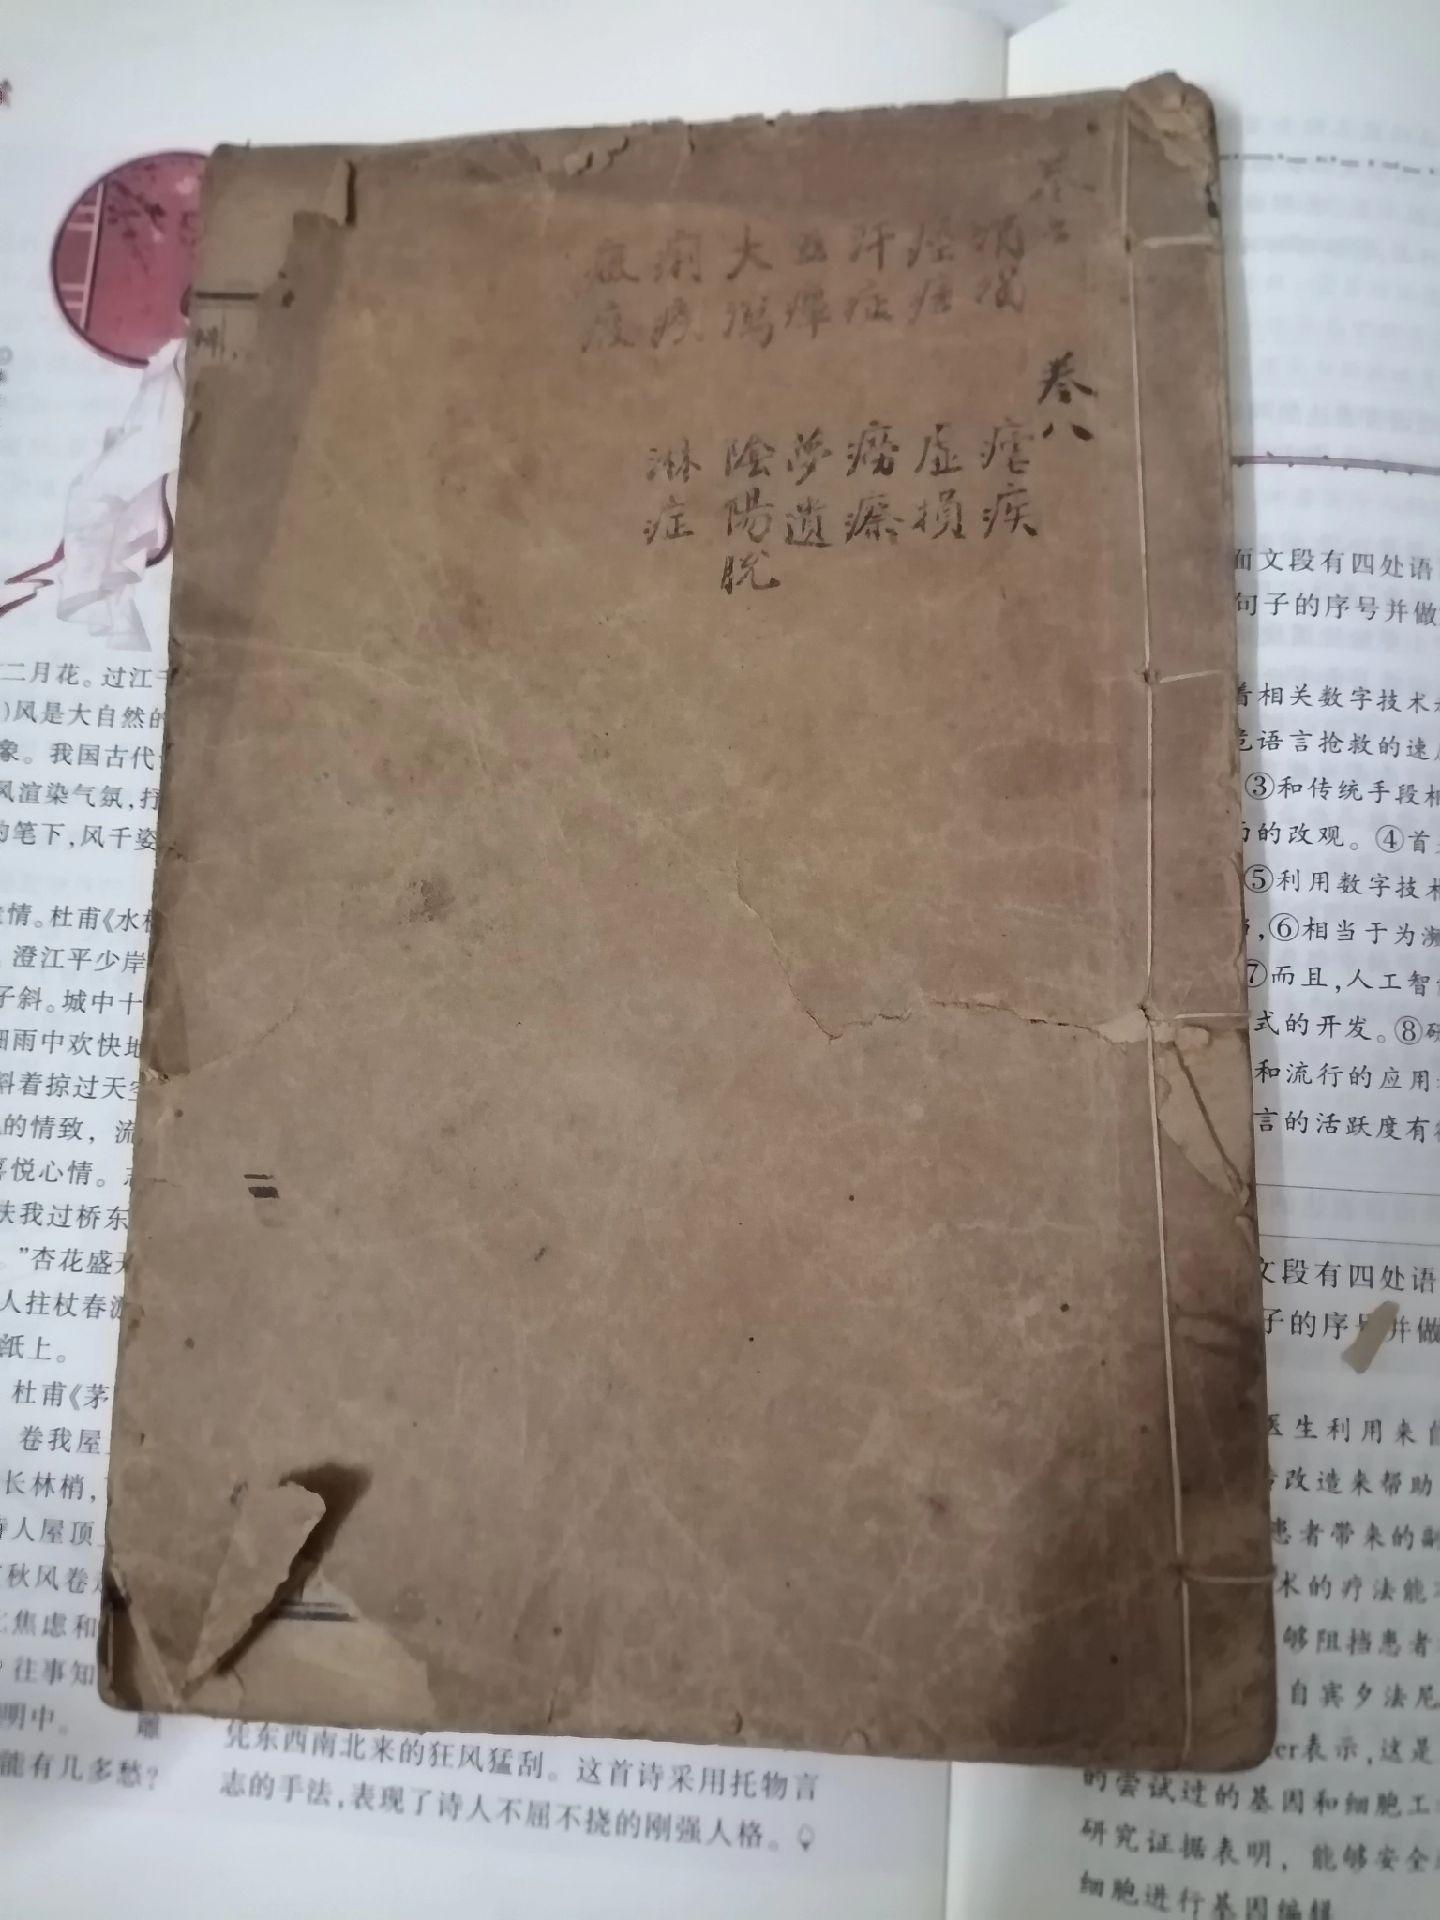 卷七
消渴
汗症
五
大瀉
痢疾
卷八
疾
虛損
癆瘵
夢遺
陰陽脫
淋症
二月花。过江千
)风是大自然的
象。我国古代
风渲染气氛,抒
的笔下,风千姿
情。杜甫《水槛
澄江平少岸
子斜。城中十
细雨中欢快地
斜着掠过天空
的情致，流
喜悦心情。志
扶我过桥东
。”杏花盛开
人拄杖春游
纸上。
杜甫《茅
卷我屋
长林梢,
人屋顶
秋风卷
焦虑和
？往事知
明中。
能有几多愁?
凭东西南北来的狂风猛刮。这首诗采用托物言
志的手法,表现了诗人不屈不挠的刚强人格。
面文段有四处语
句子的序号并做
着相关数字技术
语言抢救的速
③和传统手段相
的改观。④首
⑤利用数字技术
,⑥相当于为濒
⑦而且,人工智能
式的开发。⑧研
和流行的应用
言的活跃度有
文段有四处语
子的序号并做
医生利用来自
改造来帮助
患者带来的副
术的疗法能
够阻挡患者
自宾夕法尼
er表示,这是
的尝试过的基因和细胞工
研究证据表明，能够安全
细胞进行基因编辑